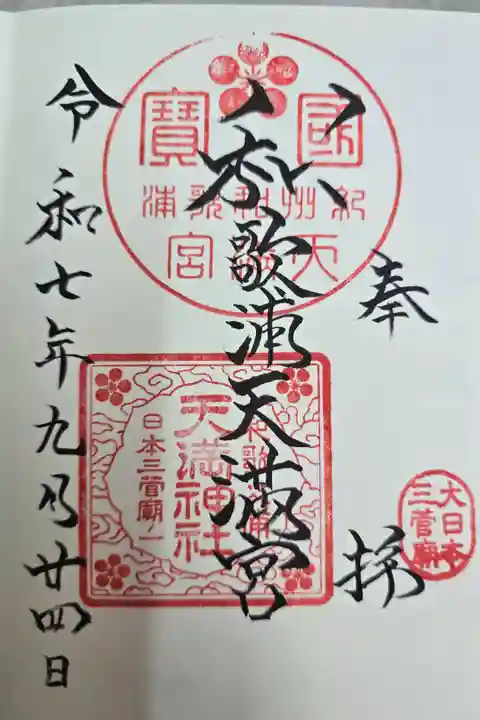 奉拝
大日本
三菅廟
國寶
紀州和歌浦
天満宮
和歌浦天満宮
和歌浦
天満神社
日本三菅廟一
令和七年九月廿四日